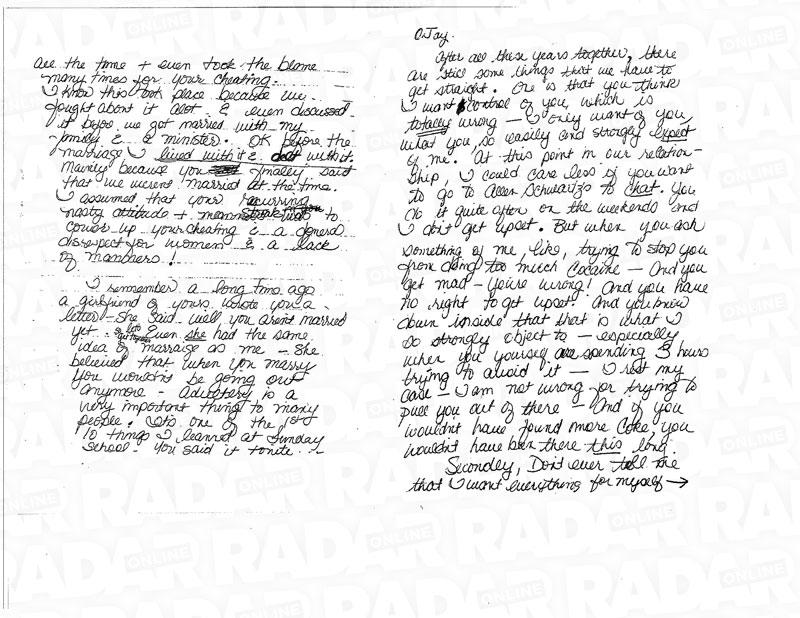 all the time + even took the blame
many times for your cheating.
I know this took place because we
fought about it alot & even discussed
it before we got married with my
family & a minister. OK before the
marriage I lived with it & dealt with it.
Mainly because you finally said
that we werent married at the time.
I assumed that your recurring
nasty attitude + to
cover up your cheating & a general
disrespect for women & a lack
of manners!
I remember a long time ago
a girlfriend of yours wrote you a
letter - She said well you aren't married
yet. Even she had the same
idea of marraige as me - She
believed that when you marry
you wouldn't be going out
anymore - Adultery is a
very important thing to many
people. Its one of the 1st
10 things I learned at Sunday
School. You said it tonite.
OJay.
After all these years together, there
are still some things that we have to
get straight. One is that you think
I want control of you, which is
totally wrong - I only want of you,
what you so easily and strongly expect
of me. At this point in our relation-
ship, I could care less if you want
to go to Allen Schwartz's to chat. You
do it quite often on the weekends and
I don't get upset. But when you ask
something of me, like, trying to stop you
from doing too much Cocaine - And you
get mad - You're wrong! And you have
no right to get upset. And you know
down inside that that is what I
so strongly object to - especially
when you yourself are spending 3 hours
trying to avoid it - I rest my
case - I am not wrong for trying to
pull you out of there - And if you
wouldn't have found more Coke you
wouldn't have been there this long.
Secondly, Don't ever tell me
that I want everything for myself →
RADAR ONLINE